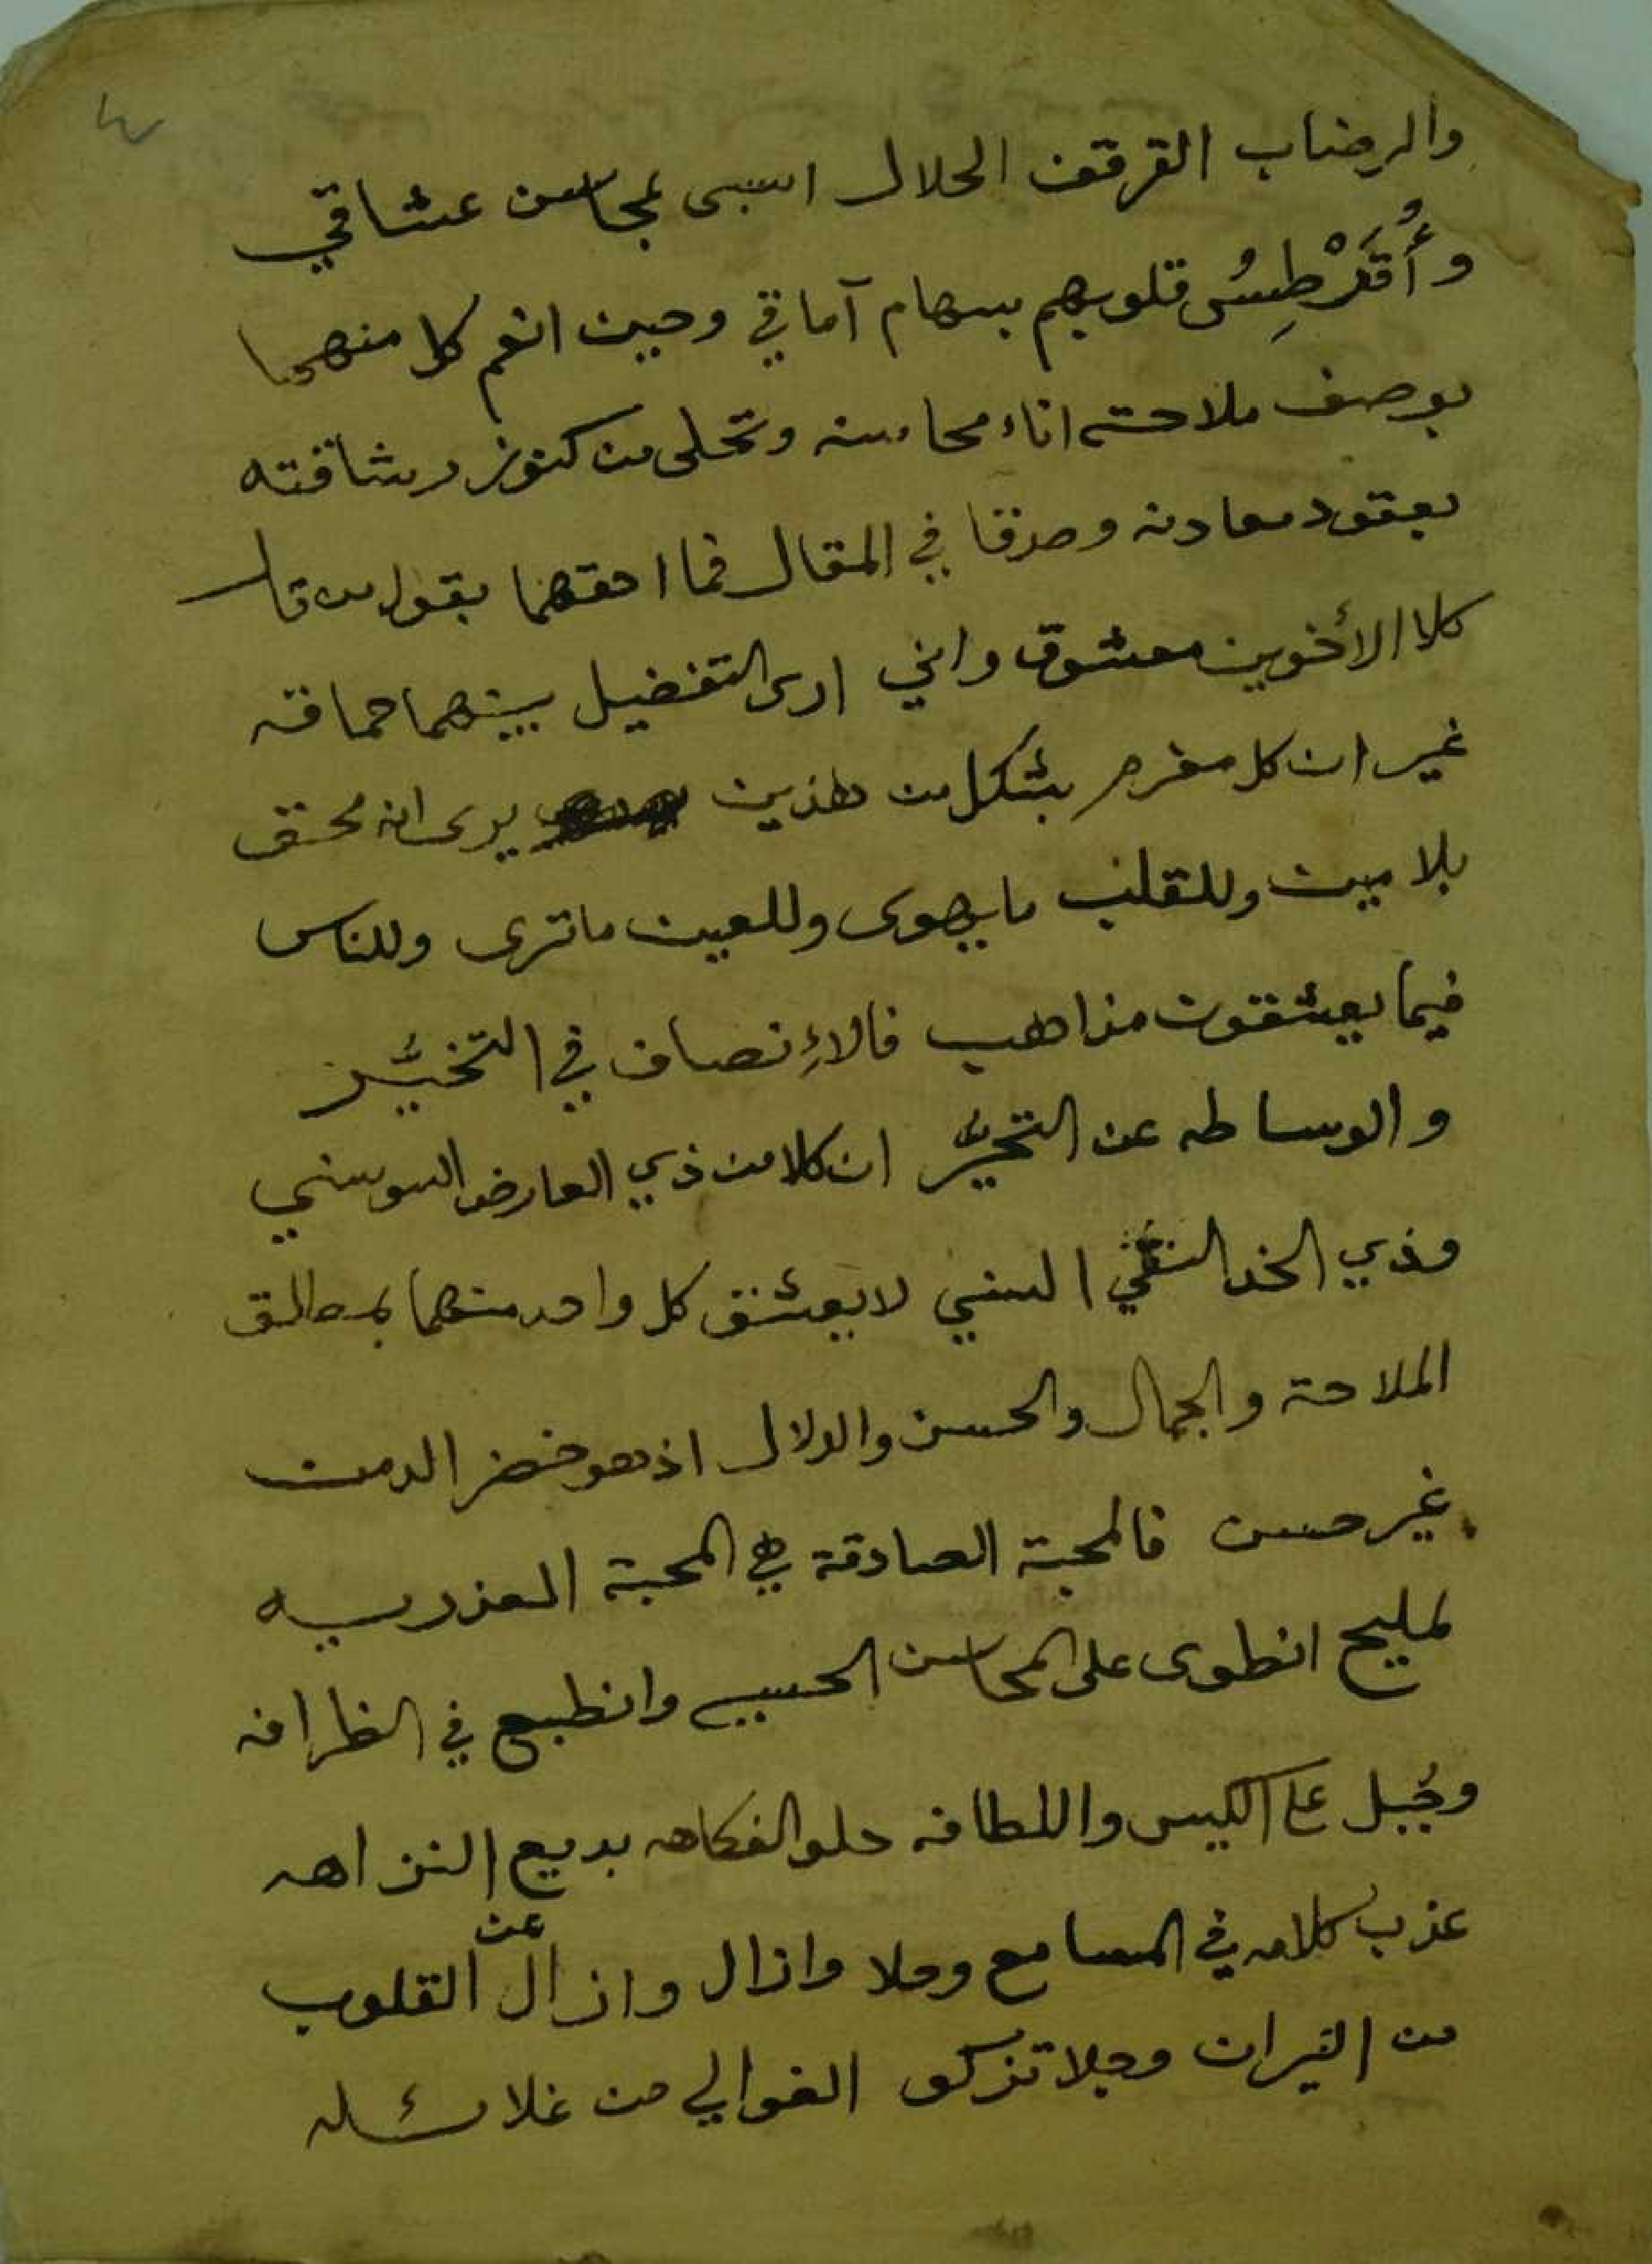 والرضاب القرقف الحلال اسبى بمحاسن عشاقي
وأُقَرْطِسُ قلوبهم بسهام آماقي وحين انعم كل منهما
بوصف ملاحته اناء محاسنه وتحلى من كنوز رشاقته
بعقود معادنه وصدقا في المقال فما احقهما بقول من قال
كلا الأخوين معشوق واني ارى التفضيل بينهما حماقه
غير ان كل مغرم بشكل من هذين يرى انه محق
بلا مين وللقلب ما يهوى وللعين ما ترى وللناس
فيما يعشقون مذاهب فالإنصاف في التخيُّر
والوساطه عن التحيُّز ان كلا من ذي العارض السوسني
وذي الخد النقي السني لا يعشق كل واحد منهما بمطلق
الملاحة والجمال والحسن والدلال اذ هو خضر الدمن
غير حسن فالمحبة الصادقة هي المحبة العذريه
لمليح انطوى على المحاسن الحسيه وانطبع في الظرافه
وجُبل على الكيس واللطافه حلو الفكاهه بديع النزاهه
عذب كلامه في المسامع وحلا وازال وازال عن القلوب
من النيران وجلا تزكو الغوالي من غلائله
٤